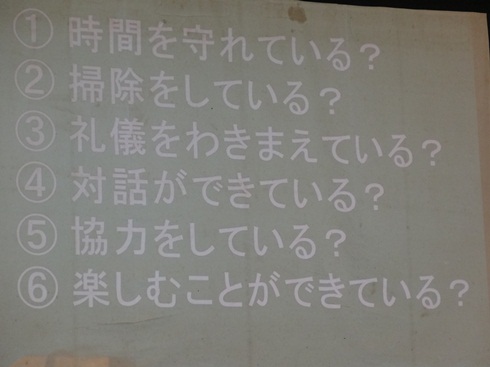 ① 時間を守れている？
② 掃除をしている？
③ 礼儀をわきまえている？
④ 対話ができている？
⑤ 協力をしている？
⑥ 楽しむことができている？